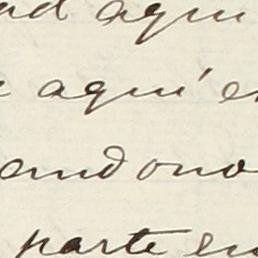 ad aqui
aqui' en
andono
parte en